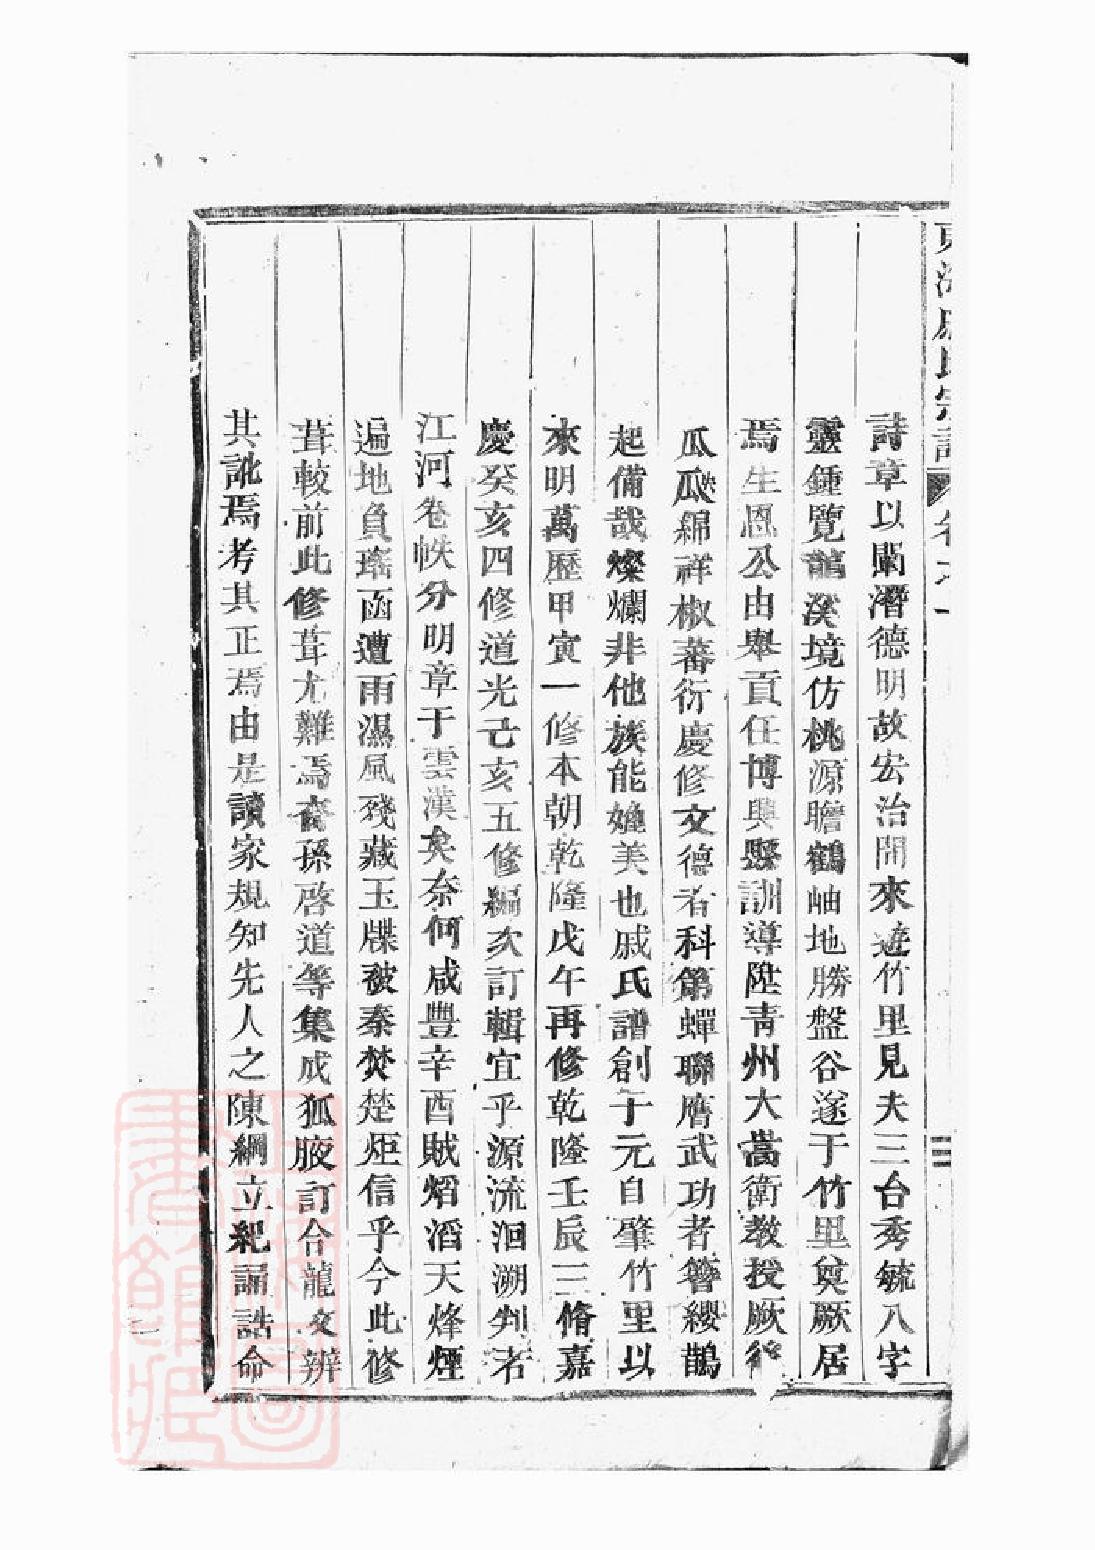 詩章以闡潛德明故宏治開來遊竹里見夫三台秀毓八字
靈鍾覽龍溪境仿桃源瞻鶴岫地勝盤谷遂于竹里奠厥居
焉生恩公由舉貢任博興縣訓導陞青州大嵩衛教授厥後
瓜瓞綿祥椒蕃衍慶修文德者科第蟬聯膺武功者簪纓鵲
起備哉燦爛非他族能媲美也戚氏譜創于元自肇竹里以
來明萬歷甲寅一修本朝乾隆戊午再修乾隆壬辰三脩嘉
慶癸亥四修道光己亥五修編次訂輯宜乎源流洄溯判若
江河卷帙分明章于雲漢矣奈何咸豐辛酉賊熖滔天烽煙
遍地負瑤函遭雨濕風殘藏玉牒被秦焚楚炬信乎今此修
葺較前此修葺尤難焉裔孫啓道等集成狐腋訂合龍文辨
其訛焉考其正焉由是讀家規知先人之陳綱立紀誦誥命
東海戚氏宗譜 卷之一
二